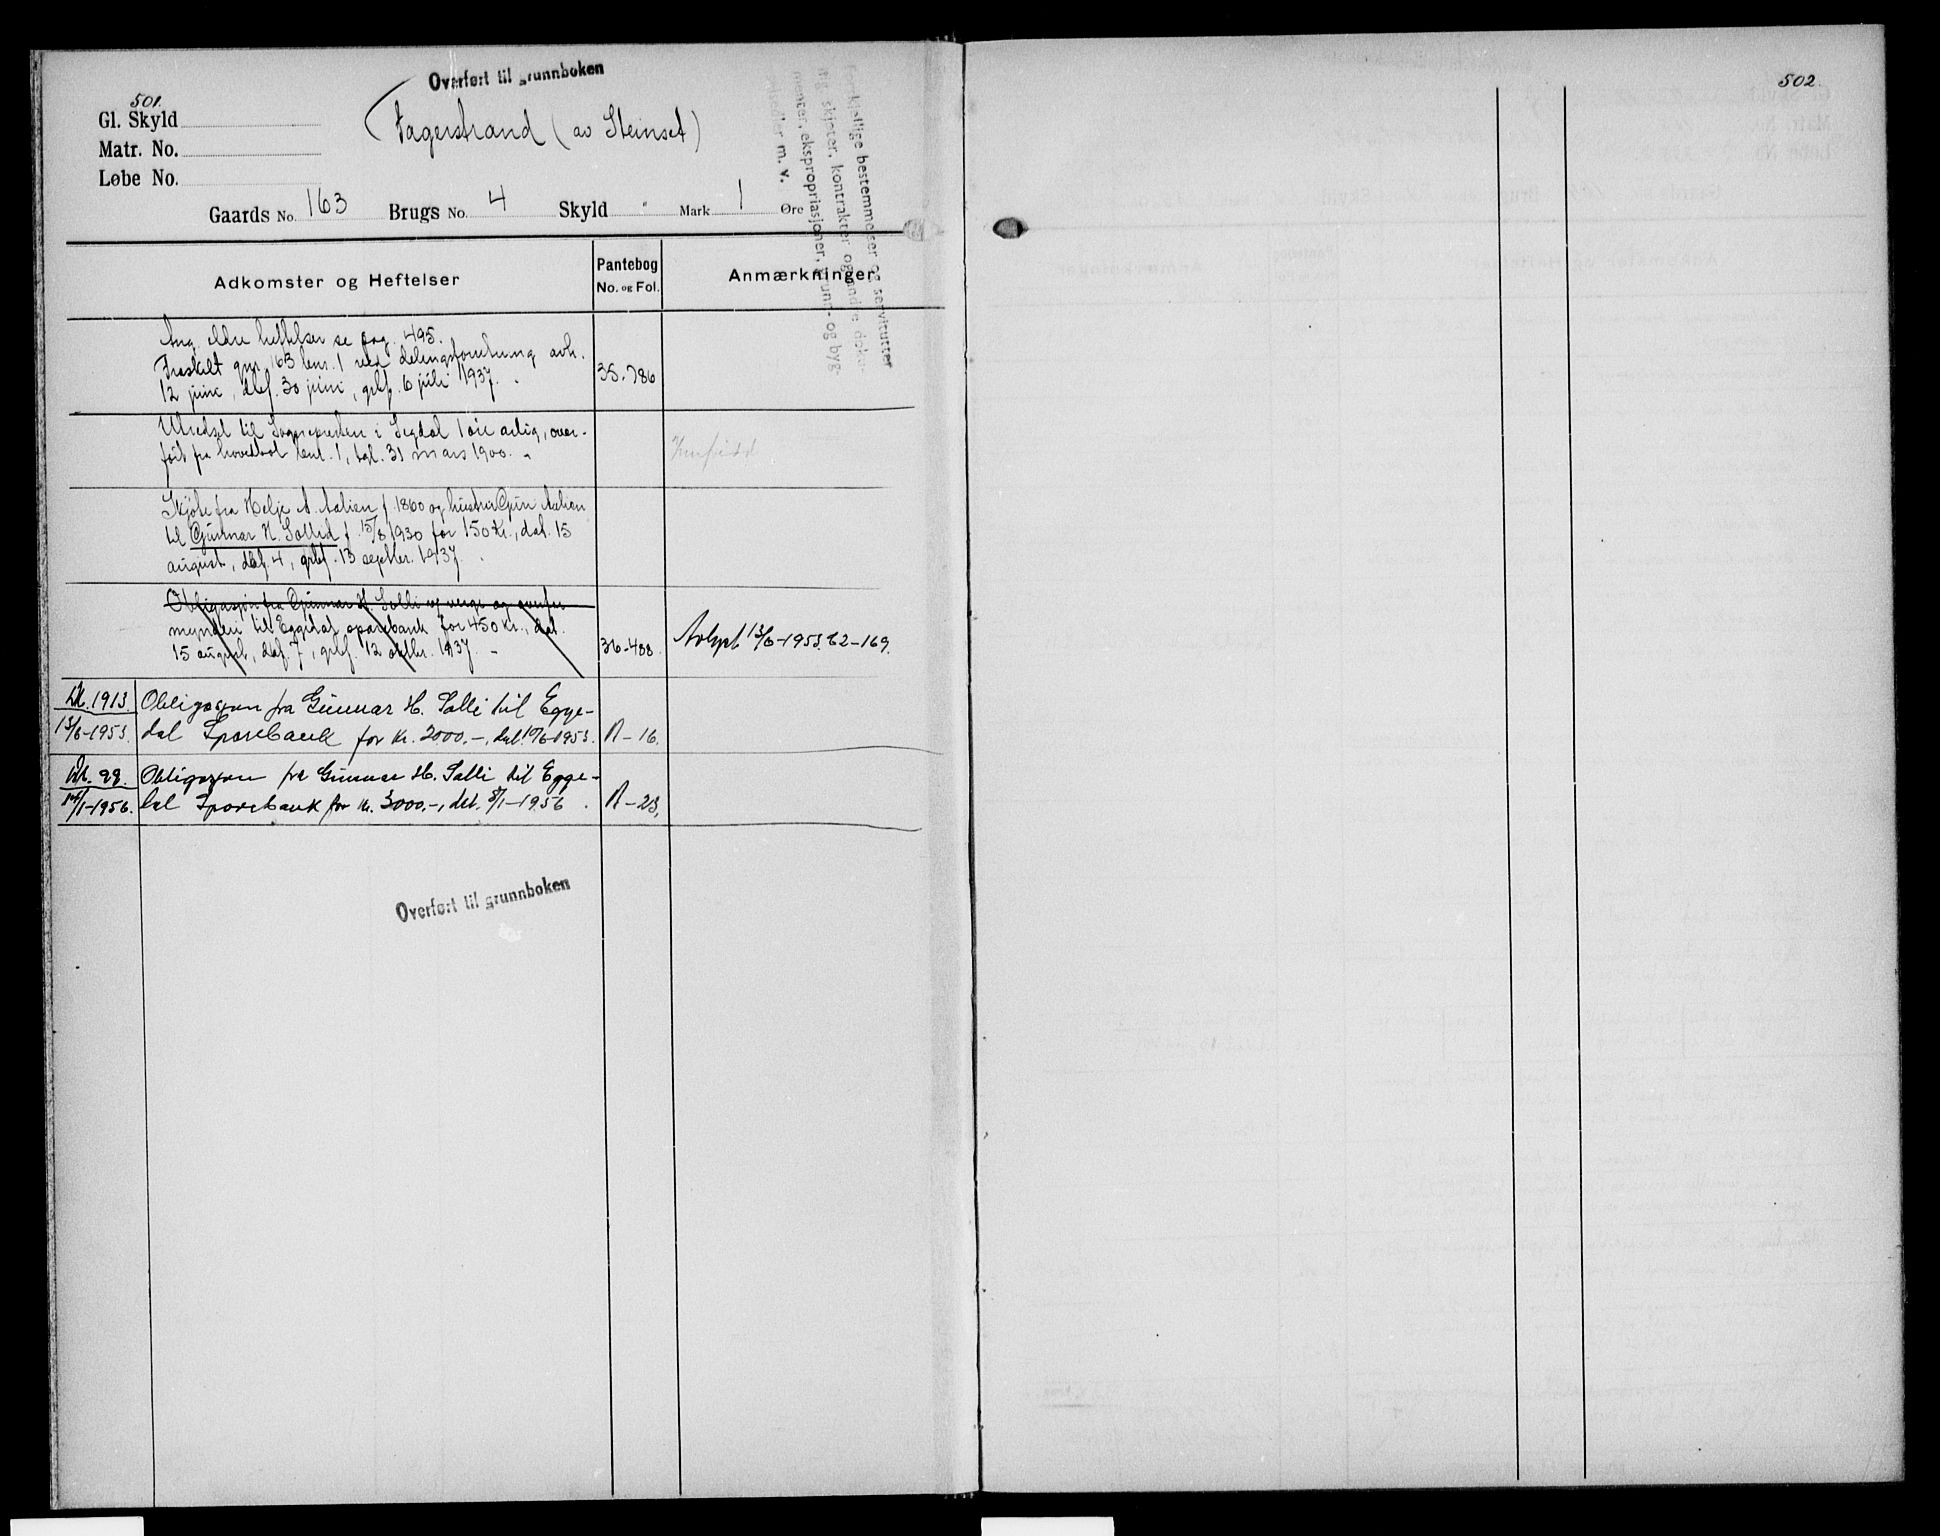 Overført til grunnboken
501.
Gl. Skyld
Matr. No.
Løbe No.
Fagerstrand (av Steinset)
Gaards No. 163 Brugs No. 4 Skyld " Mark 1 Øre
Forskjellige bestemmelser og servitutter
skjøter, kontrakter og andre doku-
menter, ekspropriasjoner, grunn- og byg-
m. v.
Adkomster og Heftelser
Pantebog
No. og Fol.
Anmærkninger
Ang. eldre heftelser se pag. 495.
Fraskilt gnr. 163 bnr. 1 ved delingsforretning avh.
12 juni, dbf. 30 juni, grbf. 6 juli 1937.
35-786
Utredsel til Sognepresten i Sigdal 1 øre årlig, over-
ført fra hovedbøl bnr. 1, tgl. 31 mars 1900.
Skjöte fra Helje A. Aalien f. 1860 og hustru Guri Aalien
til Gunnar H. Sollid f. 15/8 1930 for 150 kr., dat. 15
august, dbf. 4, grbf. 13 septbr. 1937.
Obligasjon fra Gunnar H. Solli og verge og overfor-
mynderi til Eggedal sparebank for 450 kr., dat.
15 august, dbf. 7, grbf. 12 oktbr. 1937.
36-488
Avlyst 13/6-1953. 62-169.
Dk. 1913.
13/6-1953.
Obligasjon fra Gunnar H. Solli til Egge-
dal Sparebank for kr. 2000.-, dat. 10/6-1953.
A-16.
Dk. 98.
14/1-1956.
Obligasjon fra Gunnar H. Solli til Egge-
dal Sparebank for kr. 3000.-, dat. 5/1-1956.
A-23,
Overført til grunnboken
502.